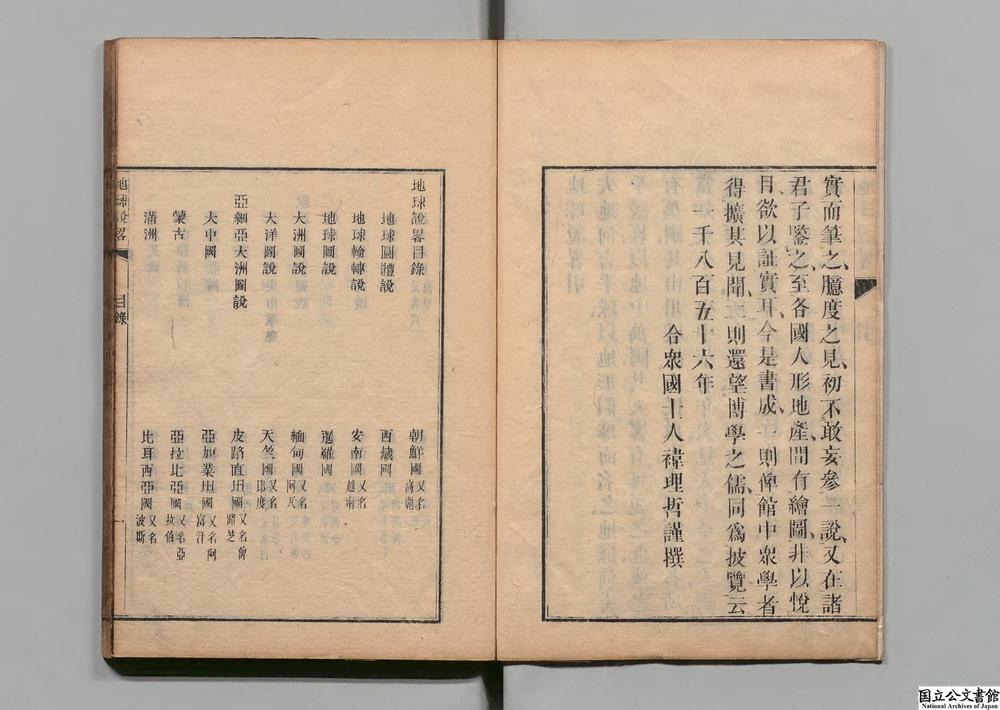 實而筆之、臆度之見、初不敢妄參一說、又在諸
君子鑒之、至各國人形地產、間有繪圖、非以悅
目、欲以証實耳、今是書成、一則俾館中衆學者
得擴其見聞、一則還望博學之儒、同爲披覽云
一千八百五十六年
合衆國士人褘理哲謹撰
地球說畧目錄
地球圓體說
地球輪轉說
地球圖說
大洲圖說
大洋圖說
亞細亞大洲圖說
大中國
蒙古
滿洲
朝鮮國 又名高麗
西藏國
安南國 又名越南
暹羅國
緬甸國 又名阿瓦
天竺國 又名印度
皮路直坦國 又名俾路芝
亞加業坦國 又名阿富汗
亞拉比亞國 又名亞拉伯
比耳西亞國 又名波斯
地球說畧
目錄
一
国立公文書館
National Archives of Japan